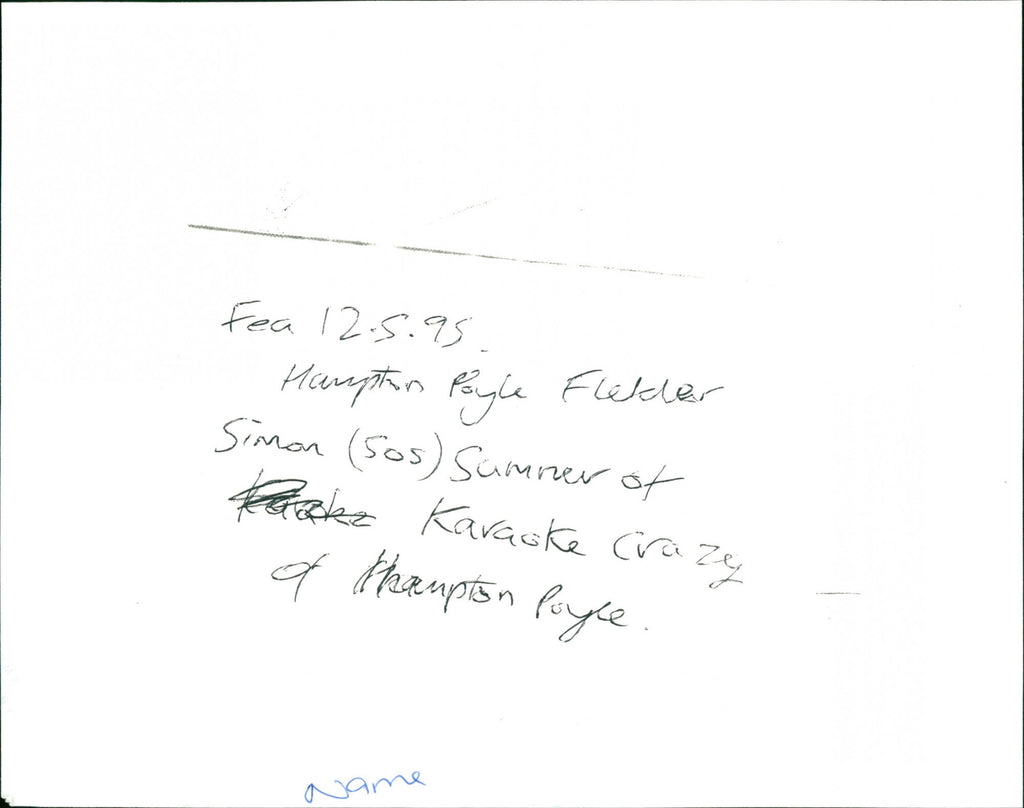 Fea 12.5.95.
Hampton Poyle Fletcher
Simon (SOS) Sumner of
Karaoke Crazy
of Hampton Poyle.
Name